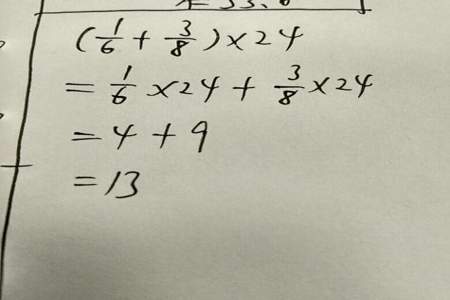 (1/6 + 3/8) × 24
= 1/6 × 24 + 3/8 × 24
= 4 + 9
= 13